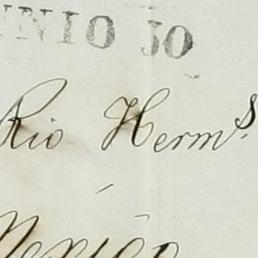 UNIO 30
Rio Herm.s
Mexico